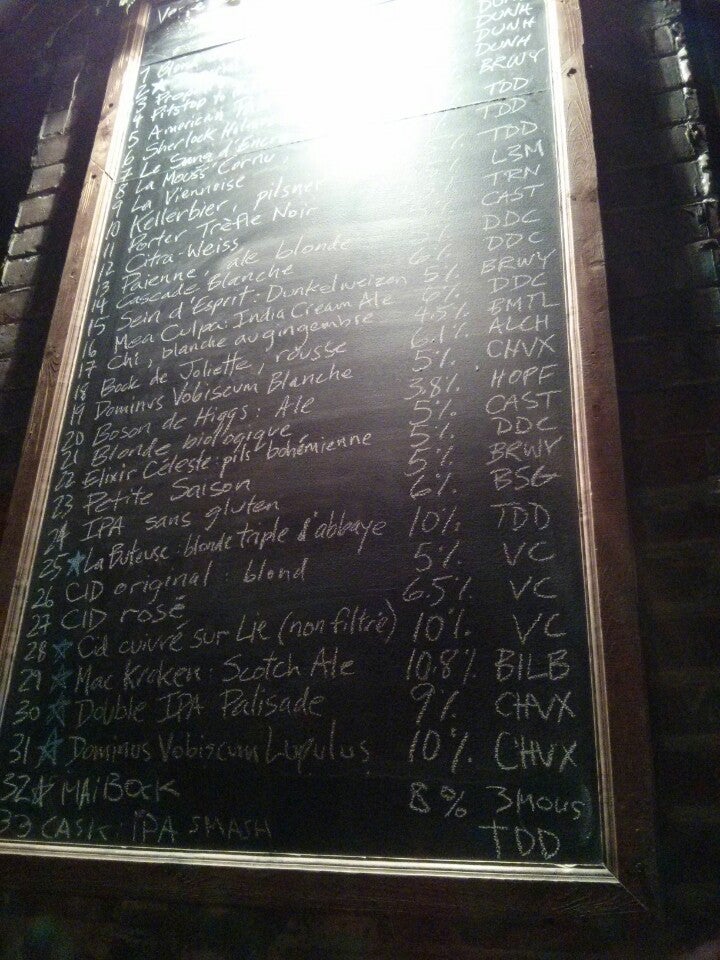 DUNH
1 Blon
2 DUNH
3 DUNH
4 Pitstop DUNH
5 American DUNH
6 Sherlock BRWY
7 Le Sang d'Enc TDD
8 La Mouss'Cornu, TDD
9 La Viennoise TDD
10 Kellerbier, pilsner L3M
11 Porter Trèfle Noir TRN
12 Citra-Weiss CAST
13 Païenne, ale blonde DDC
14 Cascade Blanche 6% DDC
15 Sein d'Esprit: Dunkelweizen 5% BRWY
16 Mea Culpa: India Cream Ale 6% DDC
17 Chi, blanche au gingembre 4.5% BMTL
18 Bock de Joliette, rousse 6.1% ALCH
19 Dominus Vobiscum Blanche 5% CHVX
20 Boson de Higgs: Ale 3.8% HOPF
21 Blonde biologique 5% CAST
22 Elixir Céleste: pils bohémienne 5% DDC
23 Petite Saison 5% BRWY
24 IPA sans gluten 6% BSG
25 ★ La Buteuse: blonde triple d'abbaye 10% TDD
26 CID original: blond 5% VC
27 CID rosé 6.5% VC
28 ★ Cid cuivré sur Lie (non filtré) 10% VC
29 ★ Mac Kraken: Scotch Ale 10.8% BILB
30 ★ Double IPA Palisade 9% CHVX
31 ★ Dominus Vobiscum Lupulus 10% CHVX
32 ☆ MAiBOCK 8% 3MOUS
33 CASK: IPA SMASH TDD